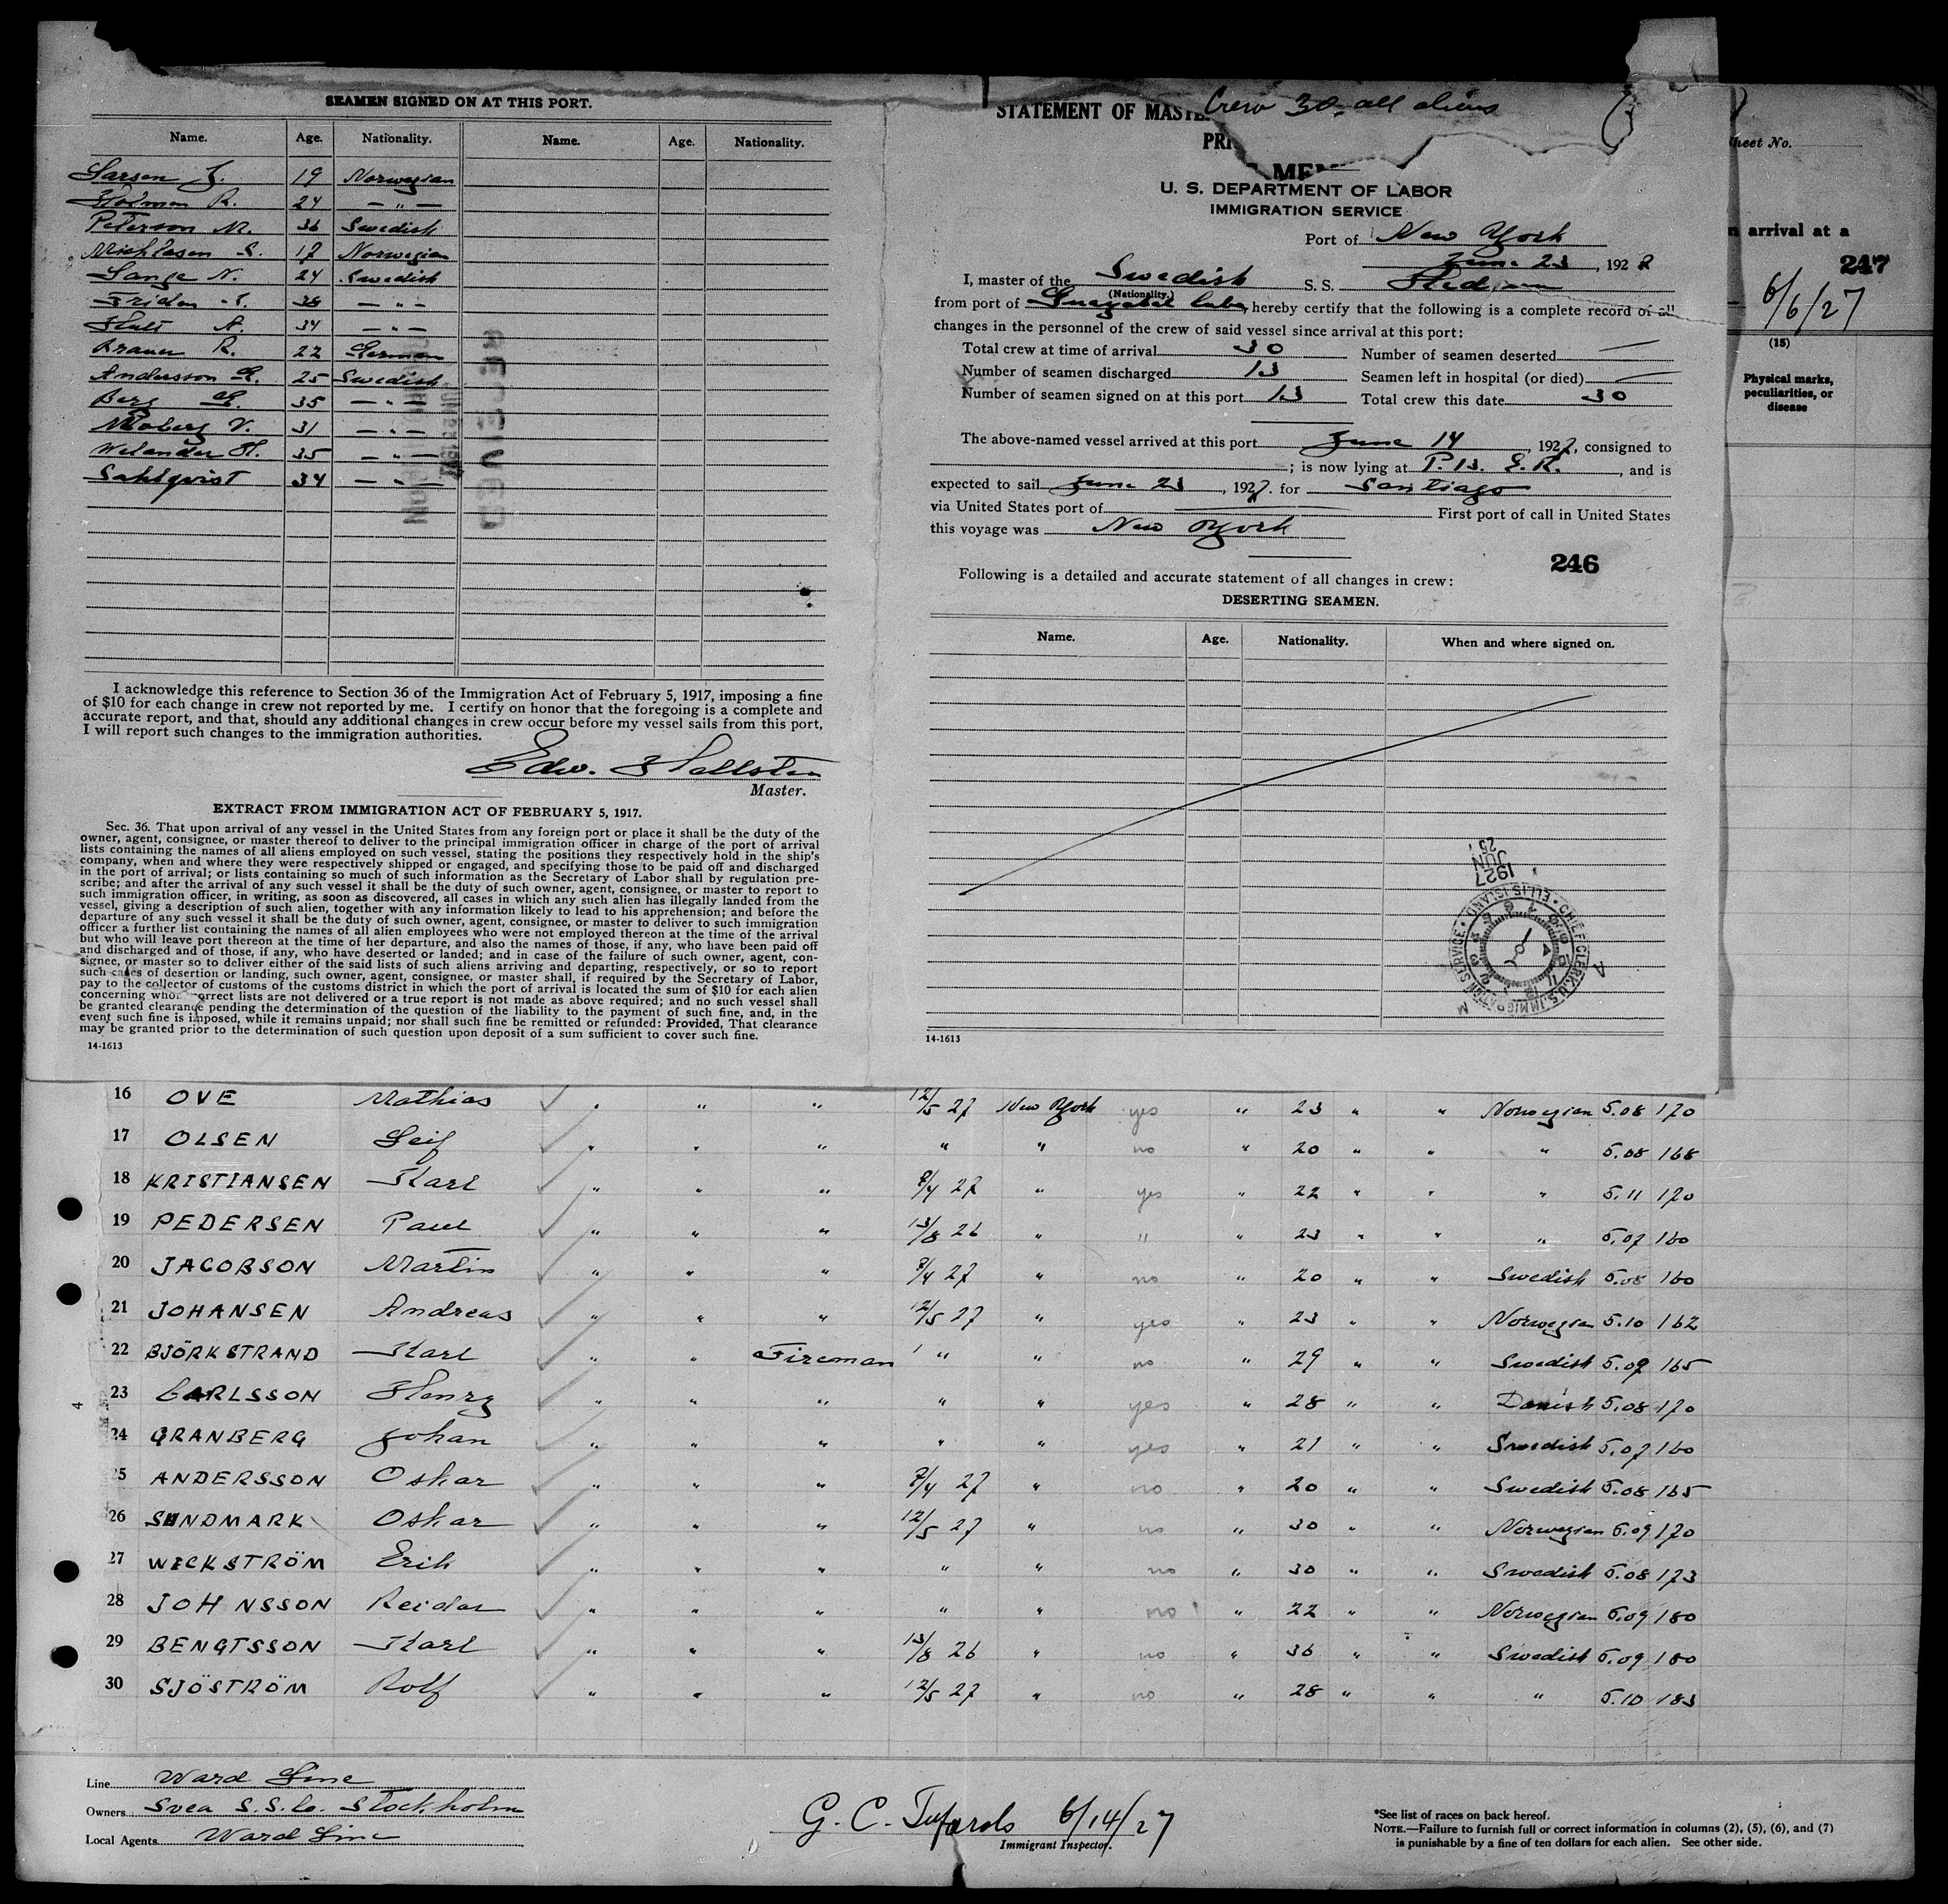 SEAMEN SIGNED ON AT THIS PORT.
Name. Age. Nationality. Name. Age. Nationality.
Larsen 19 Norwegian
R. 24 — " —
Peterson M. 36 Swedish
S. 17 Norwegian
Lange N. 24 Swedish
Friden — " —
A. 34 — " —
R. 22 German
Andersson 25 Swedish
Berg 35 — " —
Moberg V. 31 — " —
Welander H. 35 — " —
Sahlqvist 34 — " —
RECEIVED
I acknowledge this reference to Section 36 of the Immigration Act of February 5, 1917, imposing a fine
of $10 for each change in crew not reported by me. I certify on honor that the foregoing is a complete and
accurate report, and that, should any additional changes in crew occur before my vessel sails from this port,
I will report such changes to the immigration authorities.
Edw. Hellsten
Master.
EXTRACT FROM IMMIGRATION ACT OF FEBRUARY 5, 1917.
Sec. 36. That upon arrival of any vessel in the United States from any foreign port or place it shall be the duty of the
owner, agent, consignee, or master thereof to deliver to the principal immigration officer in charge of the port of arrival
lists containing the names of all aliens employed on such vessel, stating the positions they respectively hold in the ship's
company, when and where they were respectively shipped or engaged, and specifying those to be paid off and discharged
in the port of arrival; or lists containing so much of such information as the Secretary of Labor shall by regulation pre-
scribe; and after the arrival of any such vessel it shall be the duty of such owner, agent, consignee, or master to report to
such immigration officer, in writing, as soon as discovered, all cases in which any such alien has illegally landed from the
vessel, giving a description of such alien, together with any information likely to lead to his apprehension; and before the
departure of any such vessel it shall be the duty of such owner, agent, consignee, or master to deliver to such immigration
officer a further list containing the names of all alien employees who were not employed thereon at the time of the arrival
but who will leave port thereon at the time of her departure, and also the names of those, if any, who have been paid off
and discharged and of those, if any, who have deserted or landed; and in case of the failure of such owner, agent, con-
signee, or master so to deliver either of the said lists of such aliens arriving and departing, respectively, or so to report
such cases of desertion or landing, such owner, agent, consignee, or master shall, if required by the Secretary of Labor,
pay to the collector of customs of the customs district in which the port of arrival is located the sum of $10 for each alien
concerning whom correct lists are not delivered or a true report is not made as above required; and no such vessel shall
be granted clearance pending the determination of the question of the liability to the payment of such fine, and, in the
event such fine is imposed, while it remains unpaid; nor shall such fine be remitted or refunded: Provided, That clearance
may be granted prior to the determination of such question upon deposit of a sum sufficient to cover such fine.
14-1613
Crew 30 - all aliens
STATEMENT OF MASTE
PRI
U. S. DEPARTMENT OF LABOR
IMMIGRATION SERVICE
Port of New York
June 23, 1927
I, master of the Swedish S. S.
(Nationality.)
from port of Cuba, hereby certify that the following is a complete record of all
changes in the personnel of the crew of said vessel since arrival at this port:
Total crew at time of arrival 30 Number of seamen deserted —
Number of seamen discharged 13 Seamen left in hospital (or died) —
Number of seamen signed on at this port 13 Total crew this date 30
The above-named vessel arrived at this port June 14, 1927, consigned to
; is now lying at P. 13. E. R., and is
expected to sail June 23, 1927. for Santiago
via United States port of First port of call in United States
this voyage was New York
246
Following is a detailed and accurate statement of all changes in crew:
DESERTING SEAMEN.
Name. Age. Nationality. When and where signed on.
1927
JUN
25
CHIEF CLERK, U.S. IMMIGRATION SERVICE • ELLIS ISLAND •
14-1613
heet No.
n arrival at a
247
6/6/27
(15)
Physical marks,
peculiarities, or
disease
16 OVE Mathias " " " 12/5 27 New York yes " 23 " " Norwegian 5.08 170
17 OLSEN Leif " " " " " no " 20 " " " 5.08 168
18 KRISTIANSEN Karl " " " 8/4 27 " yes " 22 " " " 5.11 170
19 PEDERSEN Paul " " " 13/8 26 " " " 23 " " " 5.07 160
20 JACOBSON Martin " " " 8/4 27 " no " 20 " " Swedish 5.08 160
21 JOHANSEN Andreas " " " 12/5 27 " yes " 23 " " Norwegian 5.10 162
22 BJÖRKSTRAND Karl " " Fireman " " no " 29 " " Swedish 5.09 165
23 CARLSSON Henry " " " " " yes " 28 " " Danish 5.08 170
24 GRANBERG Johan " " " " " yes " 21 " " Swedish 5.07 160
25 ANDERSSON Oskar " " " 7/4 27 " no " 20 " " Swedish 5.08 165
26 SUNDMARK Oskar " " " 12/5 27 " no " 30 " " Norwegian 5.09 170
27 WICKSTRÖM Erik " " " " " no " 30 " " Swedish 5.08 173
28 JOH NSSON Reidar " " " " " no " 22 " " Norwegian 5.09 180
29 BENGTSSON Karl " " " 13/8 26 " no " 36 " " Swedish 5.09 180
30 SJÖSTRÖM Rolf " " " 12/5 27 " no " 28 " " " 5.10 183
4
Line Ward Line
Owners Svea S.S. Co. Stockholm
Local Agents Ward Line
G. C. 6/14/27
Immigrant Inspector.
*See list of races on back hereof.
NOTE.—Failure to furnish full or correct information in columns (2), (5), (6), and (7)
is punishable by a fine of ten dollars for each alien. See other side.